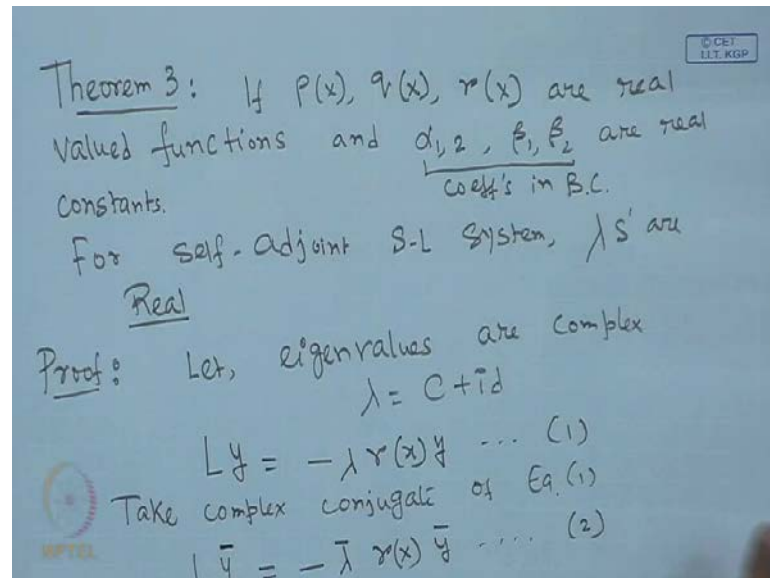 © CET
I.I.T. KGP
Theorem 3: If P(x), q(x), r(x) are real
valued functions and α1,2, β1, β2 are real
constants.
coeff's in B.C.
For self-adjoint S-L system, λs' are
Real
Proof: Let, eigenvalues are complex
λ = C + id
Ly = -λ r(x) y .... (1)
Take complex conjugate of Eq.(1)
Lȳ = -λ̄ r(x) ȳ .... (2)
NPTEL